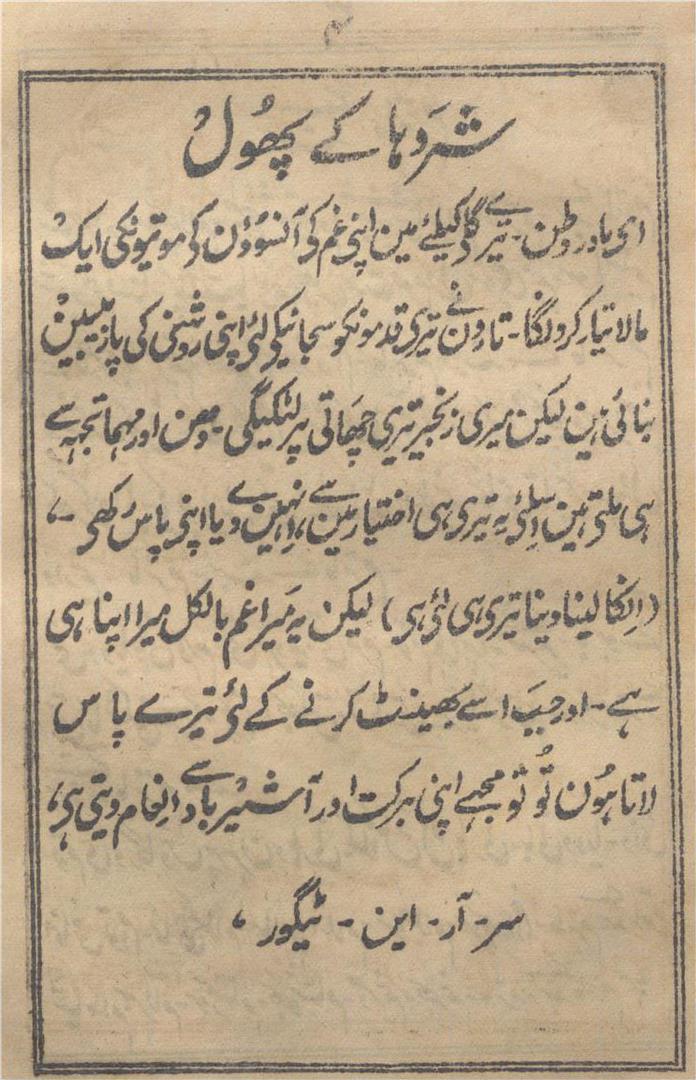 ۴
شروہا کے پھُول
ای مادر وطن۔ تیرے گلے کیلئے مین اپنی غم کی آنسوؤن کی موتیونکی ایک
مالا تیار کرونگا۔ تارون نے تیری قدمونکو سجانیکو لئے اپنی روشنی کی پازیبین
بنائی ہین لیکن میری زنجیر تیری چھاتی پر لٹکیگی۔ دھن اور مہما تجھہ سے
ہی ملتی ہین اِسلئے یہ تیری ہی اختیار مین سے، اِنہین دے دیا اپنی پاس رکھی۔،
(اِنکا لینا دینا تیری ہی لئی ہی) لیکن یہ میرا غم بالکل میرا اپنا ہی
ہے۔ اور جب اسے بھینٹ کرنے کے لئی تیرے پاس
لاتا ہُون تُو تو مجھے اپنی برکت اور آشیرباد سے انعام دیتی ہی،
سر۔ آر۔ این۔ ٹیگور،